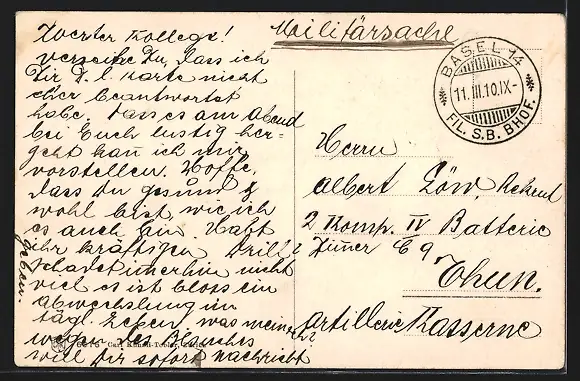 Militärsache
Werter Kollege!
verzeihe Du, dass ich
Dir D. l. Karte nicht
eher beantwortet
habe. Dass es am Abend
bei Euch lustig her=
geht kan ich mir
vorstellen. Hoffe,
dass du gesund &
wohl bist, wie ich
es auch bin. Habt
ihr kräftigen Drill?
schadet imerhin nicht
viel es ist bloss ein
Abwechslung im
tägl. Leben, was meinst
wegen des
will Dir sofort Nachricht
geben.
BASEL 14
11.III.10.IX-
FIL. S.B. BHOF.
Herrn
Albert Löw, Rekrut
2 Komp. IV Batterie
Zimer C 9
Thun.
Artillerie Kasserne
Carl Künzli-Tobler, Zürich